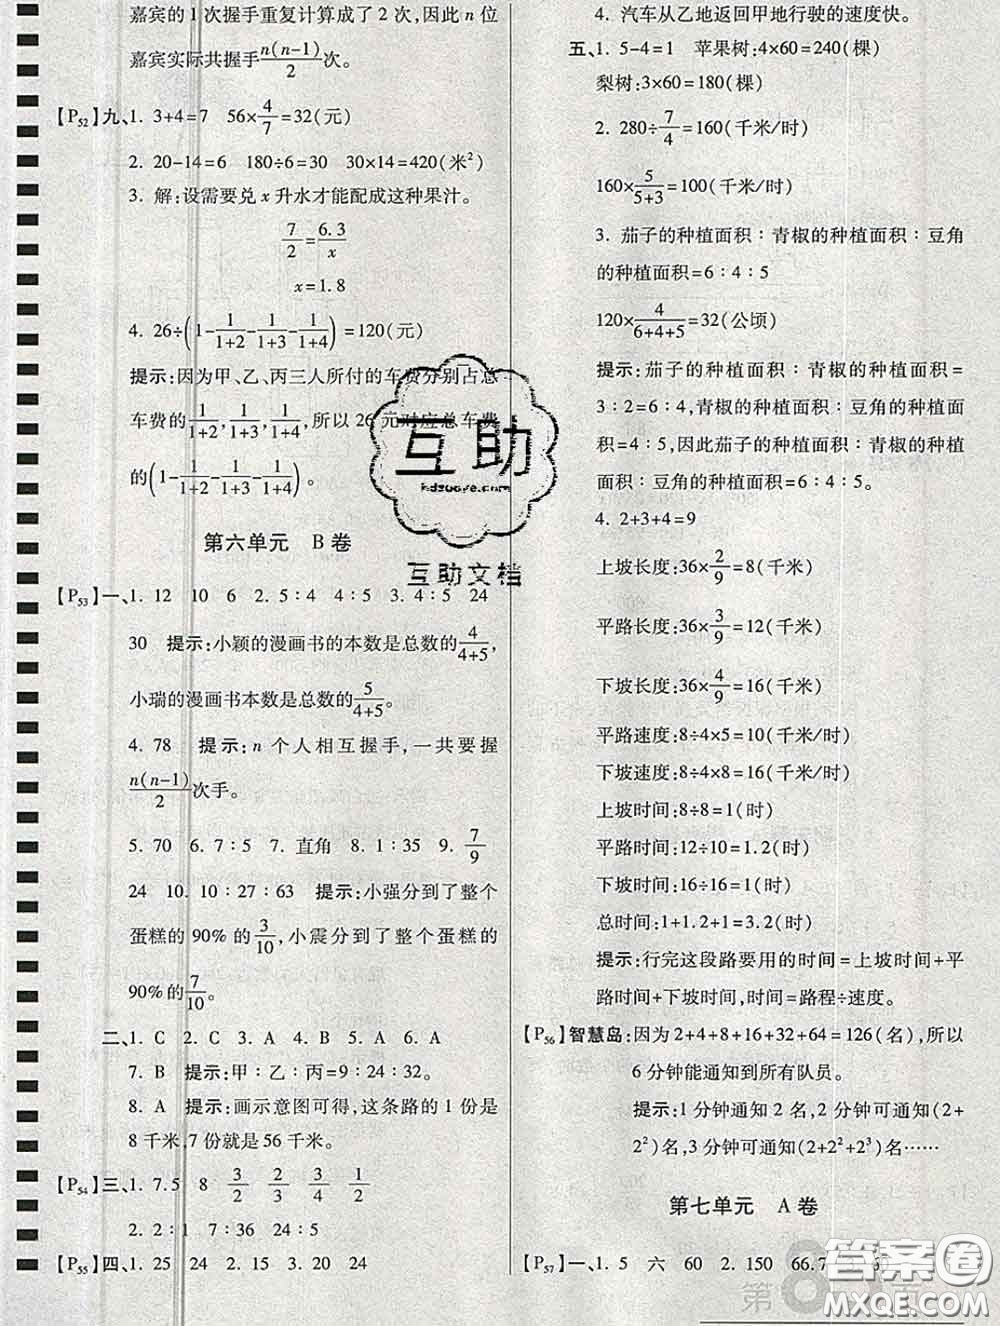 嘉宾的1次握手重复计算成了2次,因此n位
嘉宾实际共握手n(n-1)/2次。
【P52】九、1. 3+4=7 56×4/7=32(元)
2. 20-14=6 180÷6=30 30×14=420(米²)
3. 解:设需要兑x升水才能配成这种果汁。
7/2=6.3/x
x=1.8
4. 26÷(1-1/(1+2)-1/(1+3)-1/(1+4))=120(元)
提示:因为甲、乙、丙三人所付的车费分别占总
车费的1/(1+2),1/(1+3),1/(1+4),所以26元对应总车费
的(1-1/(1+2)-1/(1+3)-1/(1+4))。
第六单元 B卷
【P53】一、1. 12 10 6 2. 5:4 4:5 3. 4:5 24
30 提示:小颖的漫画书的本数是总数的4/(4+5),
小瑞的漫画书本数是总数的5/(4+5)。
4. 78 提示:n个人相互握手,一共要握
n(n-1)/2次手。
5. 70 6. 7:5 7. 直角 8. 1:35 9. 7/9
24 10. 10:27:63 提示:小强分到了整个
蛋糕的90%的3/10,小震分到了整个蛋糕的
90%的7/10。
二、1. C 2. C 3. A 4. B 5. A 6. A
7. B 提示:甲:乙:丙=9:24:32。
8. A 提示:画示意图可得,这条路的1份是
8千米,7份就是56千米。
【P54】三、1. 7.5 8 3/2 3/4 1/2
2. 2:1 7:36 24:5
【P55】四、1. 25 24 2. 15 24 3. 16 24
4. 汽车从乙地返回甲地行驶的速度快。
五、1. 5-4=1 苹果树:4×60=240(棵)
梨树:3×60=180(棵)
2. 280÷7/4=160(千米/时)
160×5/(5+3)=100(千米/时)
3. 茄子的种植面积:青椒的种植面积:豆角
的种植面积=6:4:5
120×4/(6+4+5)=32(公顷)
提示:茄子的种植面积:青椒的种植面积=
3:2=6:4,青椒的种植面积:豆角的种植面
积=4:5,因此茄子的种植面积:青椒的种植
面积:豆角的种植面积=6:4:5。
4. 2+3+4=9
上坡长度:36×2/9=8(千米)
平路长度:36×3/9=12(千米)
下坡长度:36×4/9=16(千米)
平路速度:8÷4×5=10(千米/时)
下坡速度:8÷4×8=16(千米/时)
上坡时间:8÷8=1(时)
平路时间:12÷10=1.2(时)
下坡时间:16÷16=1(时)
总时间:1+1.2+1=3.2(时)
提示:行完这段路要用的时间=上坡时间+平
路时间+下坡时间,时间=路程÷速度。
【P56】智慧岛:因为2+4+8+16+32+64=126(名),所以
6分钟能通知到所有队员。
提示:1分钟通知2名,2分钟可通知(2+
2²)名,3分钟可通知(2+2²+2³)名……
第七单元 A卷
【P57】一、1. 5 六 60 2. 150 66.7
互助
hdzuoye.com
互助文档
答案圈
MXQE.COM
第 页